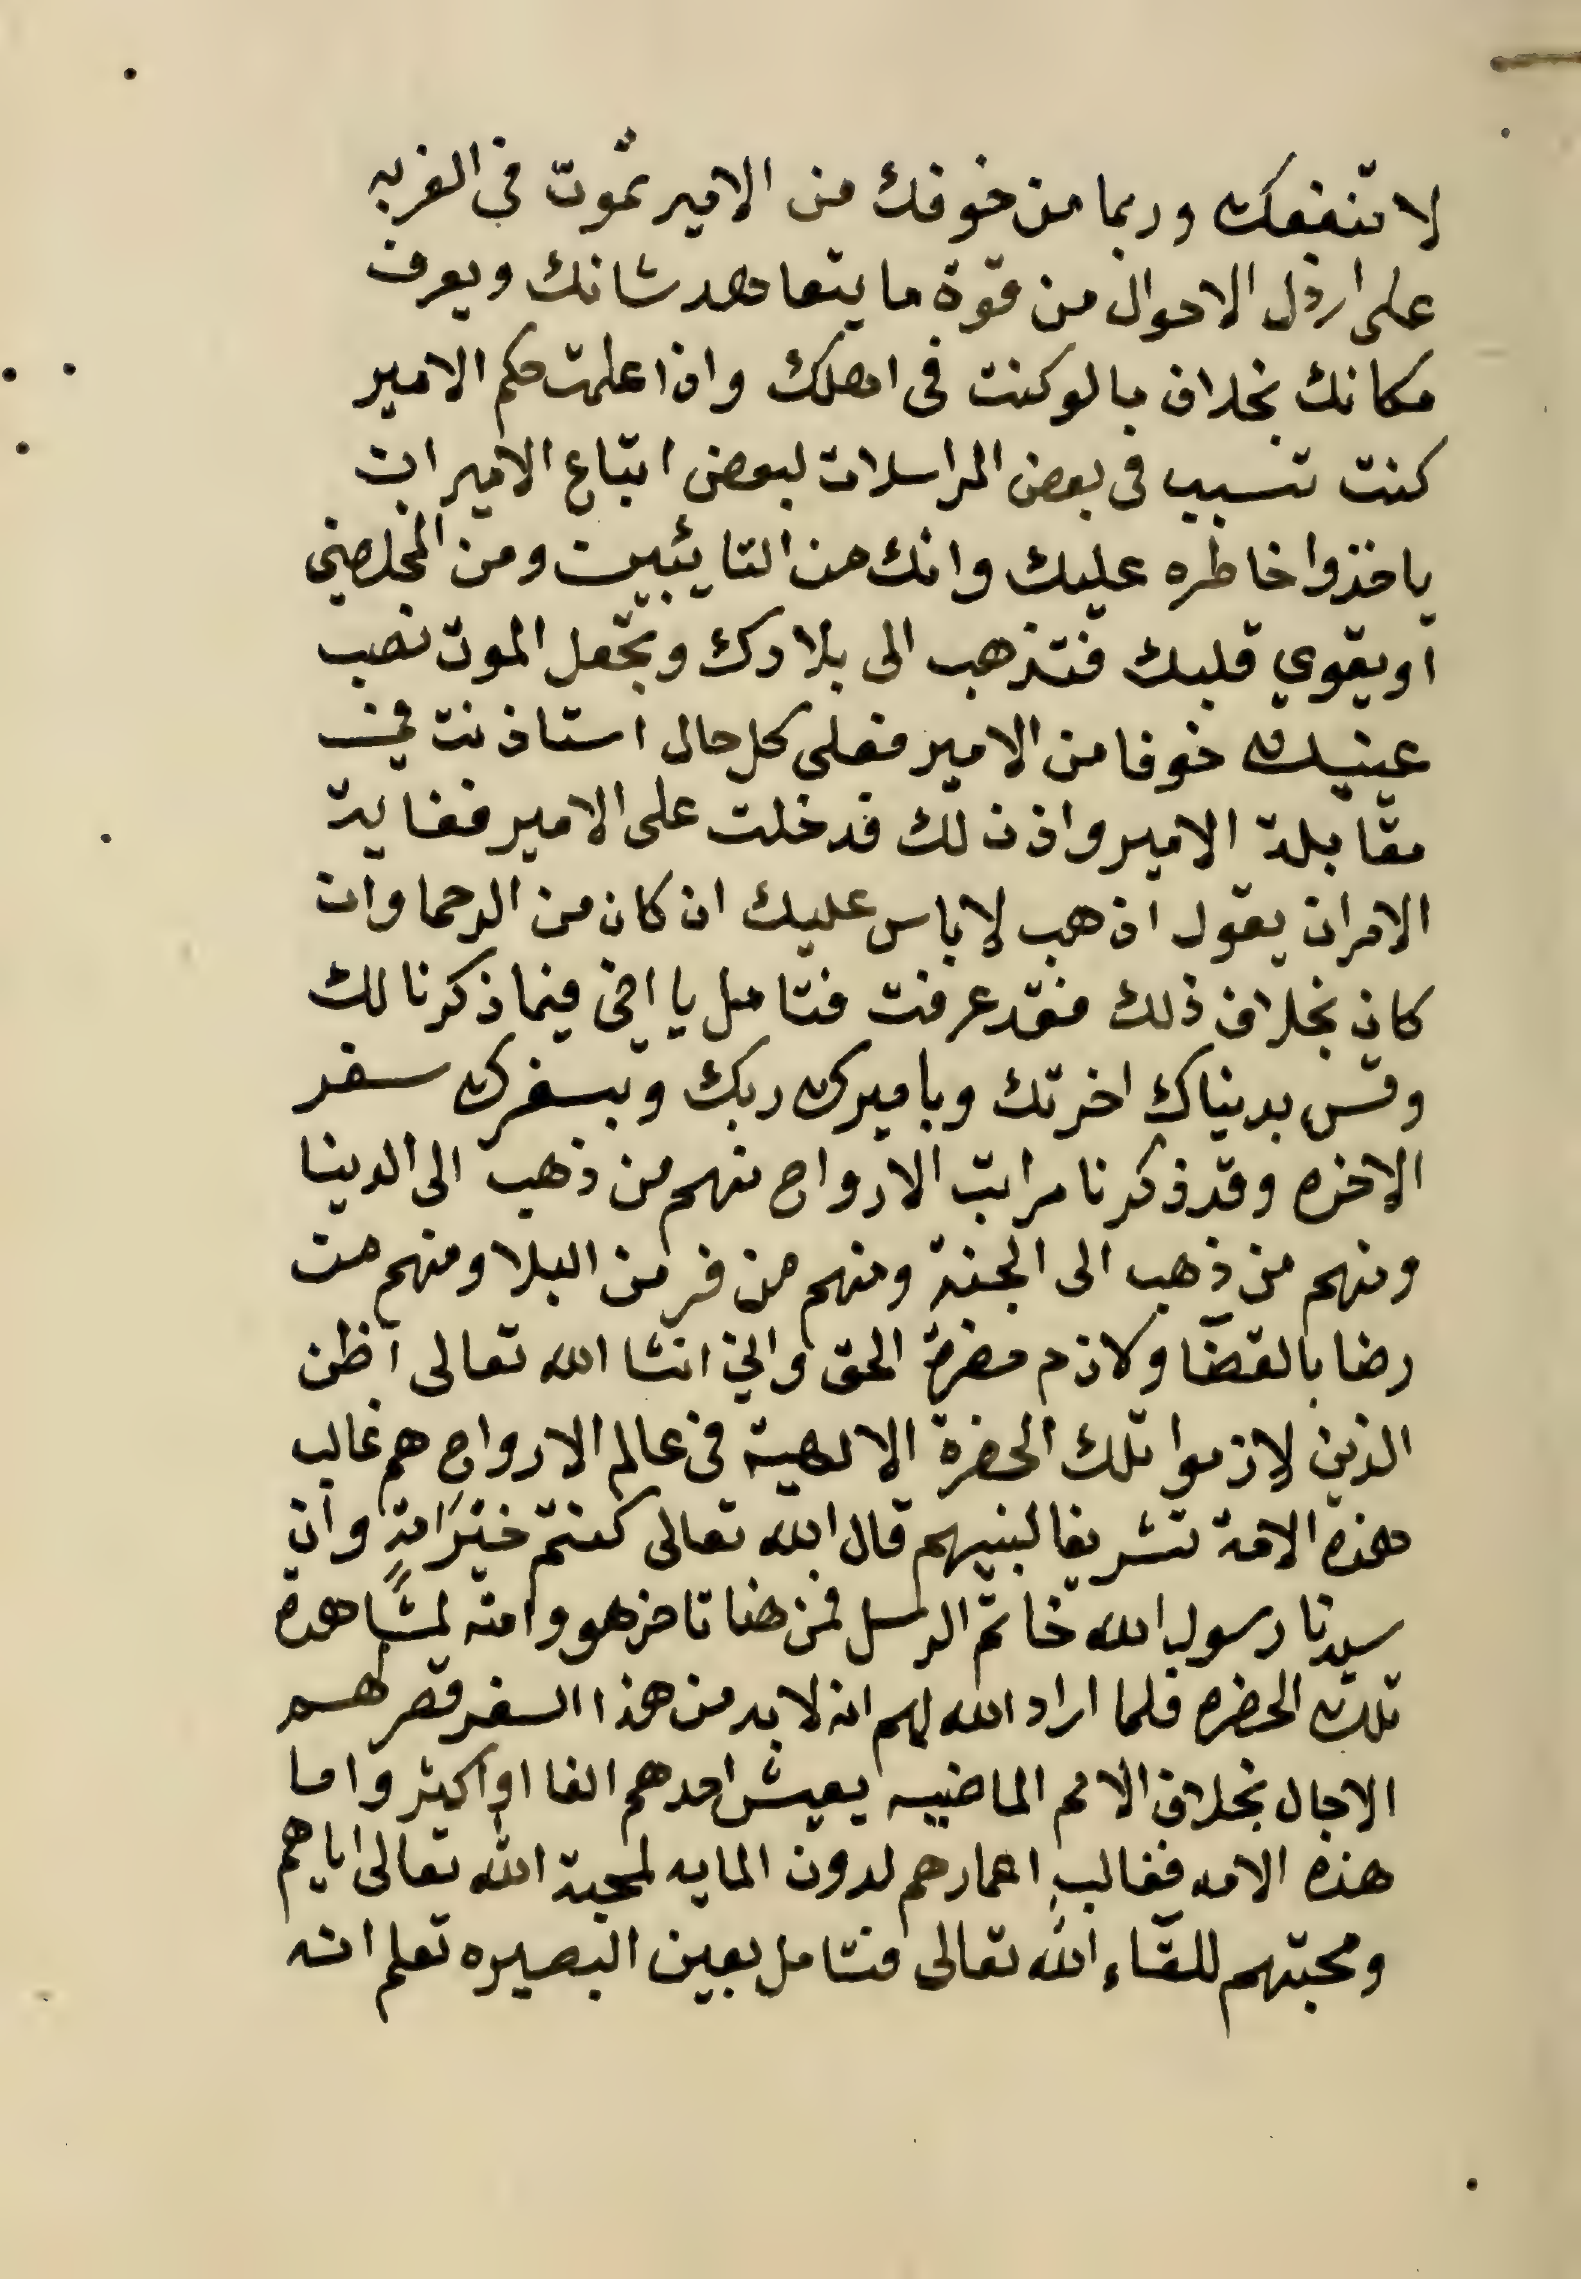 لا تنفعك وربما من خوفك من الامير تموت في الغربه
على ارذل الاحوال من قوة ما يتعاهد شانك ويعرف
مكانك بخلاف ما لو كنت في اهلك واذا علمت حكم الامير
كنت تتسبب في بعض المراسلات لبعض اتباع الامير ان
ياخذوا خاطره عليك وانك من التايبين ومن المخلصين
او يقوي قلبك فتذهب الى بلادك وتجعل الموت نصب
عينيك خوفا من الامير فعلى كل حال استاذنت في
مقابلة الامير واذن لك فدخلت على الامير فغاية
الامر ان يقول اذهب لا باس عليك ان كان من الرحما وان
كان بخلاف ذلك فقد عرفت فتامل يا اخي فيما ذكرنا لك
وقس بدنياك اخرتك وباميرك ربك وبسفرك سفر
الاخره وقد ذكرنا مراتب الارواح منهم من ذهب الى الدنيا
ومنهم من ذهب الى الجنة ومنهم من فر من البلا ومنهم من
رضا بالقضا ولازم حضرة الحق واني انشا الله تعالى اظن
الذين لازموا تلك الحضرة الالهية في عالم الارواح هم غالب
هذه الامة تشريفا لنبيهم قال الله تعالى كنتم خير امة وان
سيدنا رسول الله خاتم الرسل فمن هنا تاخر هو وامته لمشاهدة
تلك الحضره فلما اراد الله لهم انه لا بد من هذا السفر قصر لهم
الاجال بخلاف الامم الماضيه يعيش احدهم الفا او اكثر واما
هذه الامه فغالب اعمارهم لدون المايه لمحبة الله تعالى اياهم
ومحبتهم للقاء الله تعالى فتامل بعين البصيره تعلم انه